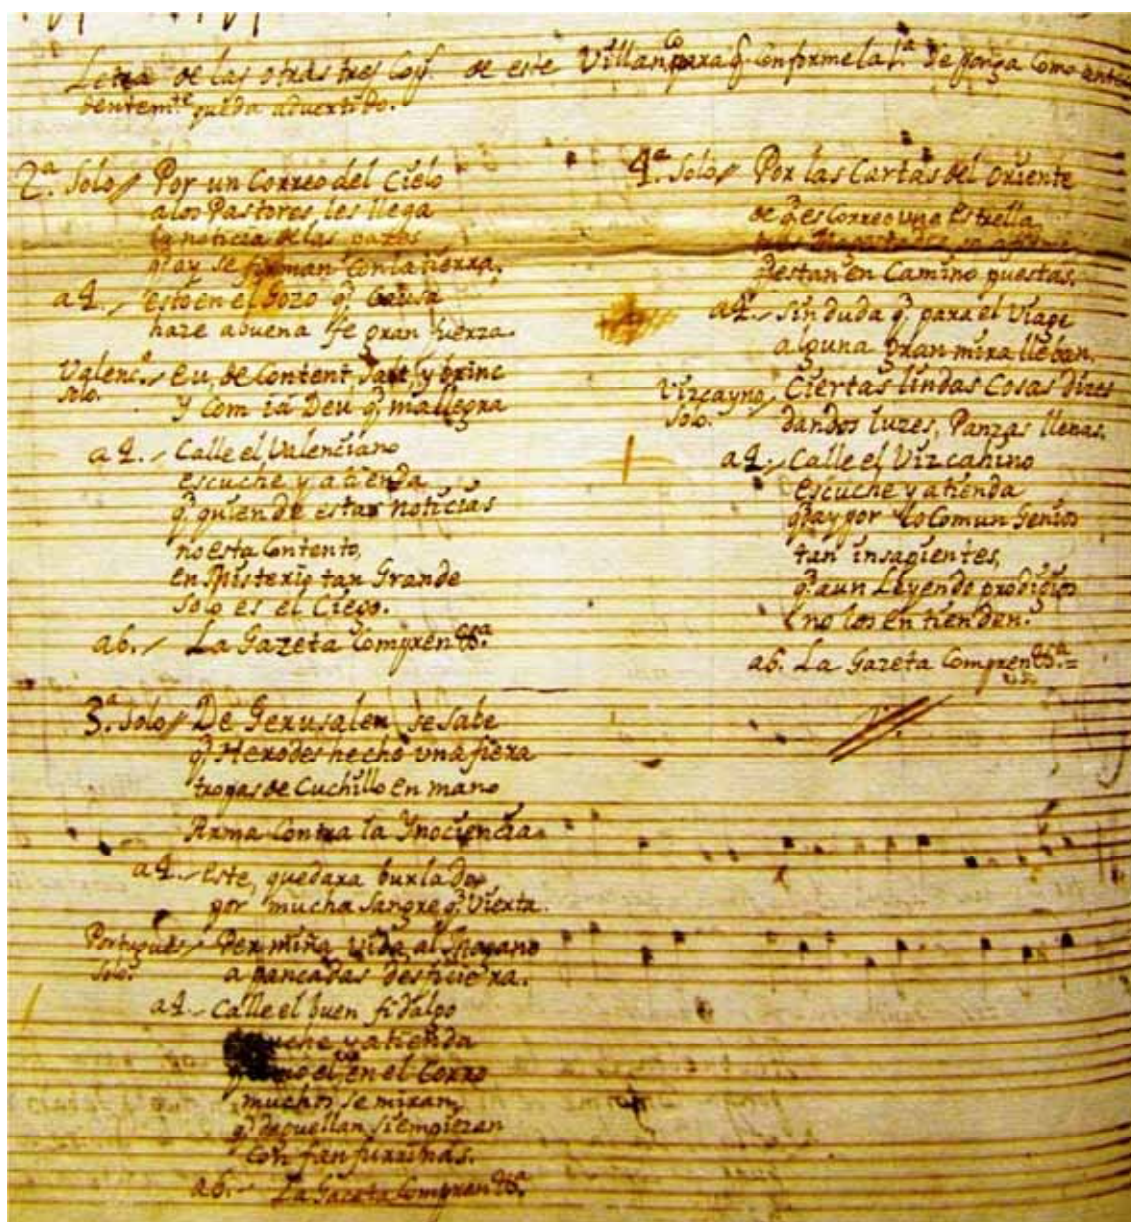 Letra de las otras tres Cop.s de este Villan.co para q.e Conforme la 1.a Se ponga Como ante
dentem.te queda aduertido.
2.a Solo // Por un Correo del Cielo
alos Pastores, les llega
la noticia de las pazes
q.e oy se firman Con la tierra.
a 4. esto en el Gozo q.e Causa
haze abuena fe gran fuerza.
Valenc.o Solo. Eu, de Content Salt, y brinc
Y Com ia Deu q.e mallegra
a 4. Calle el Valenciano
escuche y atienda
q.e quien de estas noticias
no esta Contento,
en Misterio tan Grande
Solo es el Ciego.
a 6. La Gazeta Compren &.a
3.a Solo // De Gerusalen, se Sabe
q.e Herodes hecho una fiera
tropas de Cuchillo en mano
Arma Contra la Ynociencia.
a 4. este, quedara burlado
por mucha Sangre q.e Vierta.
Portugues Solo. Per miña vida al
a pancadas desficiera.
a 4. Calle el buen fidalgo
escuche y atienda
el, en el Corro
muchos se miran,
q.e deguellan si empiezan
Con fanfurriñas.
a 6. La Gaceta Compren &.a
4.a Solo // Por las Cartas del Oriente
de q.e es Correo una estrella
q.e estan en Camino puestas.
a 4. Sin duda q.e para el Viage
alguna gran mira lleban.
Vizcayno Solo. Ciertas lindas Cosas dizes
dandos luzes, Panzas llenas.
a 4. Calle el Vizcahino
escuche y atienda
q.e ay por lo Comun Genios
tan insapientes,
q.e aun Leyendo prodigios
no los entienden.
a 6. La Gazeta Compren &.a